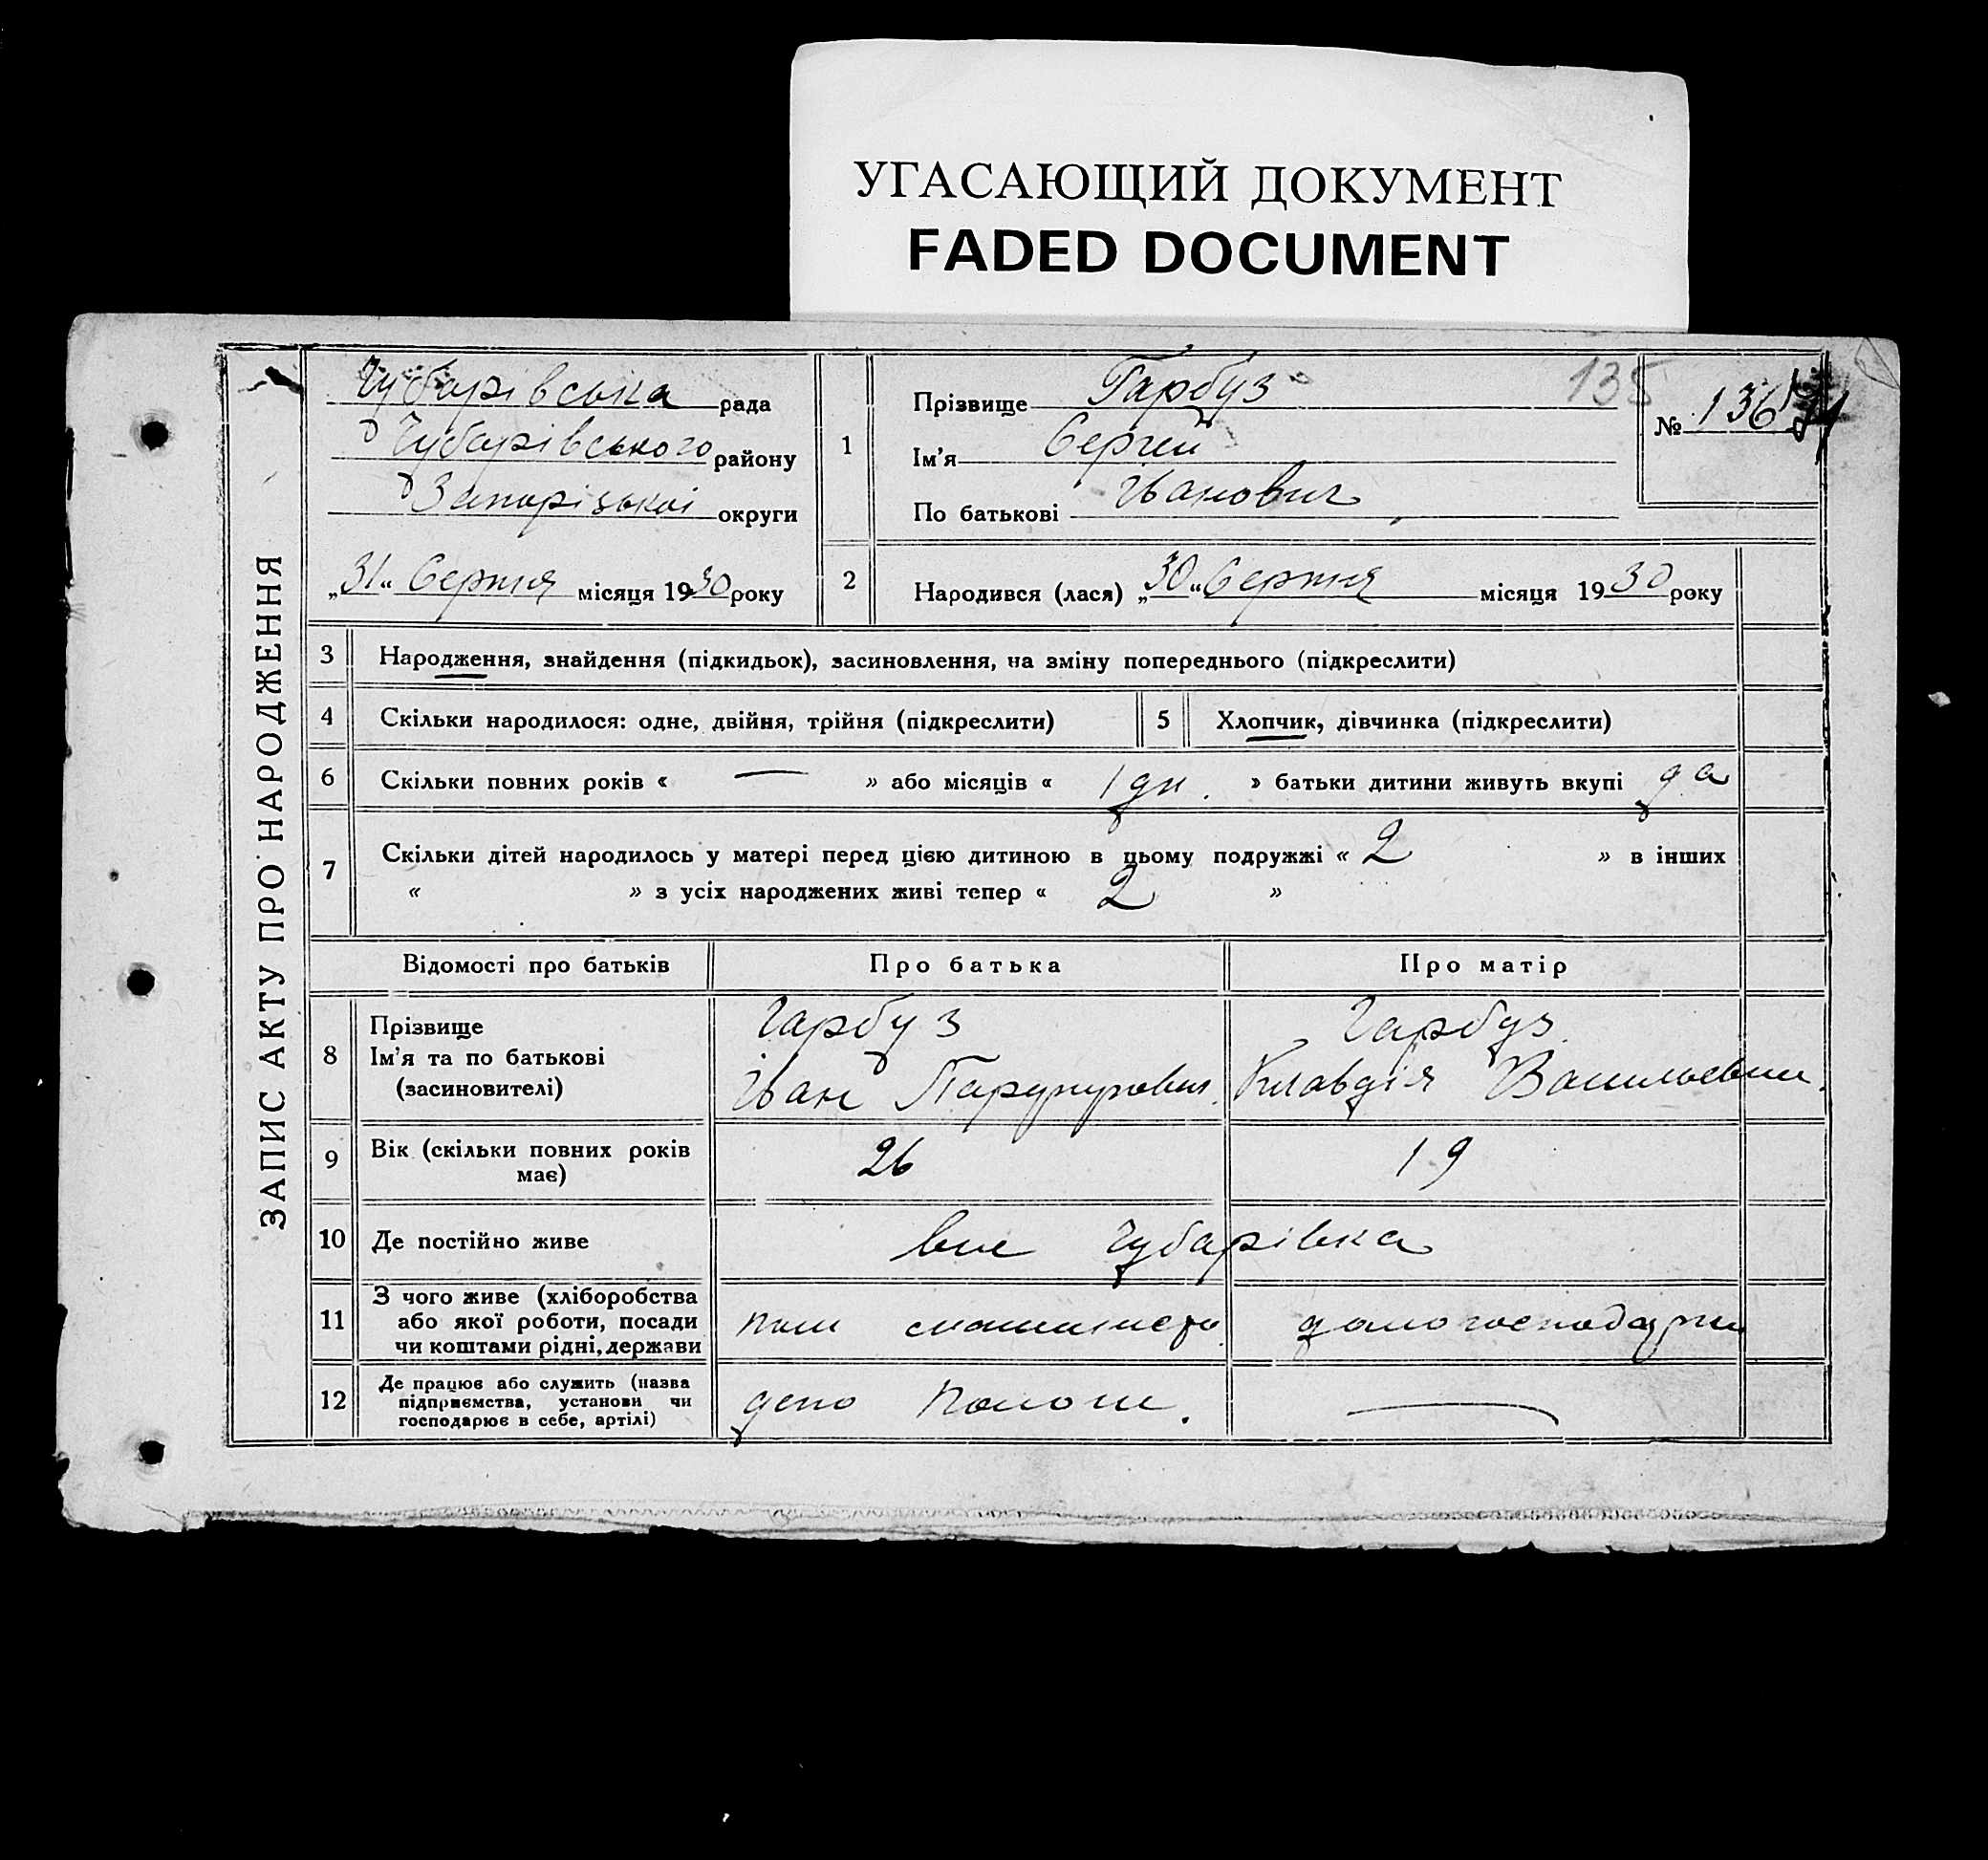 УГАСАЮЩИЙ ДОКУМЕНТ
FADED DOCUMENT
ЗАПИС АКТУ ПРО НАРОДЖЕННЯ
Чубарівська рада
Чубарівського району
Запорізької округи
„31“ Серпня місяця 1930 року
1
Прізвище Гарбуз
135
№ 136
Ім'я Сергей
По батькові Іванович
2 Народився (лася) „30“ Серпня місяця 1930 року
3 Народження, знайдення (підкидьок), засиновлення, на зміну попереднього (підкреслити)
4 Скільки народилося: одне, двійня, трійня (підкреслити)
5 Хлопчик, дівчинка (підкреслити)
6 Скільки повних років « — » або місяців « 1 дн. » батьки дитини живуть вкупі да
7 Скільки дітей народилось у матері перед цією дитиною в цьому подружжі « 2 » в інших
« » з усіх народжених живі тепер « 2 »
Відомості про батьків Про батька Про матір
8 Прізвище
Ім'я та по батькові
(засиновителі)
Гарбуз
Іван
Гарбуз
Клавдія Васильевна
9 Вік (скільки повних років
має)
26 19
10 Де постійно живе Чубарівка
11 З чого живе (хліборобства
або якої роботи, посади
чи коштами рідні, держави
пом машиниста домогосподарка
12 Де працює або служить (назва
підприємства, установи чи
господарює в себе, артілі)
депо Пологи. —